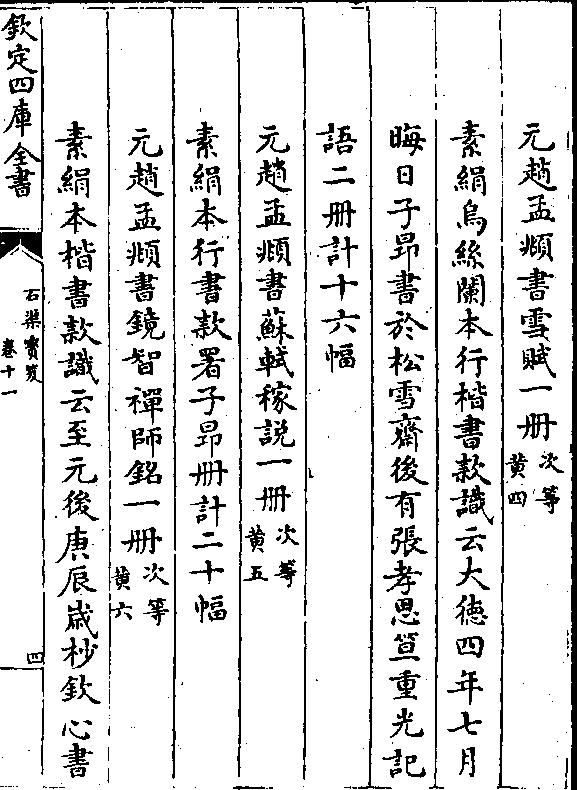 元趙孟頫書雪賦一册次等黄四
素絹烏絲闌本行楷書款識云大徳四年七月
晦日子昂書於松雪齋後有張孝思笪重光記
語二册計十六幅
元趙孟頫書蘇軾稼説一册次等黄五
素絹本行書款署子昂册計二十幅
元趙孟頫書鏡智禪師銘一册次等黄六
素絹本楷書款識云至元後庚辰嵗杪欽心書
欽定四庫全書
石渠寳笈
卷十一
四